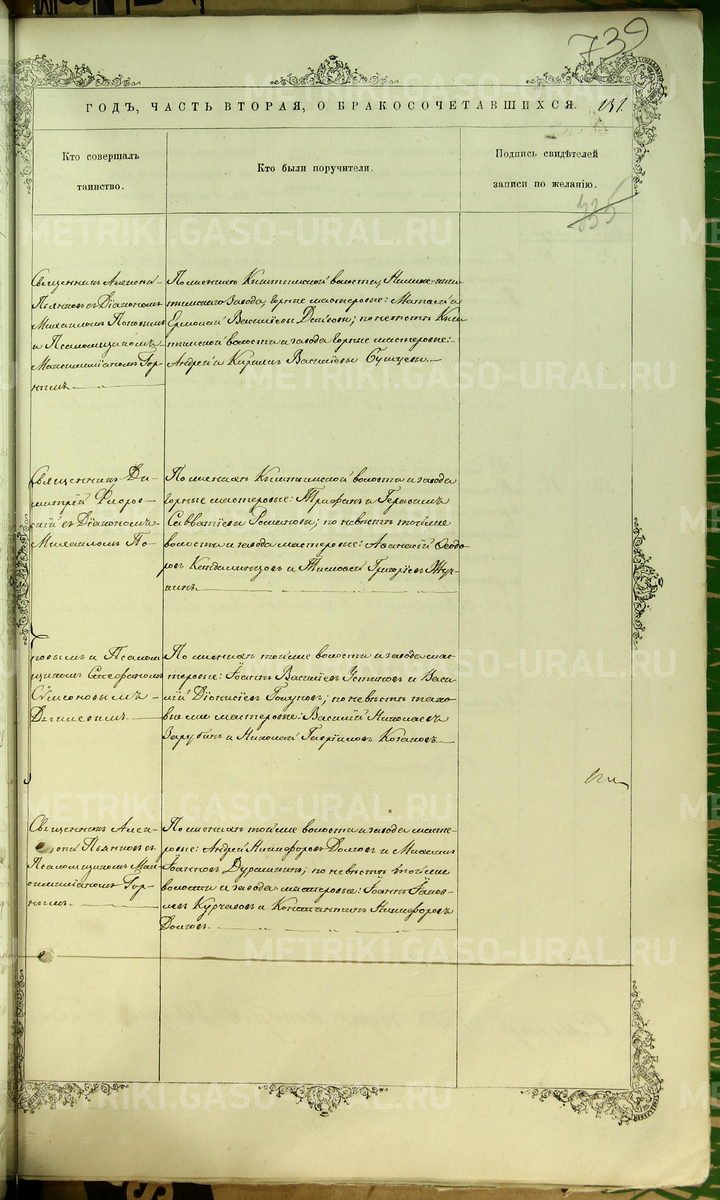 739
ГОДЪ, ЧАСТЬ ВТОРАЯ, О БРАКОСОЧЕТАВШИХСЯ.
131.
Кто совершалъ
таинство.
Кто были поручители.
Подпись свидѣтелей
записи по желанію.
735
Священникъ
Пьянковъ съ Діакономъ
Михаиломъ Поповымъ
и Псаломщикомъ
Максимиліаномъ Гор-
нымъ.
По женихѣ Кыштымской волости, Нижнекыш-
тымскаго завода, горные мастеровые: Матвѣй и
Ермолай Васильевы; по невѣстѣ Кыш-
тымской волости и завода горные мастеровые:
Андрей и Кириллъ Васильевы
Священникъ Ди-
митрій Флоров-
скій съ Діакономъ
Михаиломъ По-
По женихѣ Кыштымской волости и завода
горные мастеровые: Трифонъ и Герасимъ
Савватіевы; по невѣстѣ той же
волости и завода мастеровые: Аѳанасій Ѳеодо-
ровъ и Тимоѳей Григорьевъ
повымъ и Псалом-
щикомъ Стефаномъ
Сѵмеоновымъ
По женихѣ той же волости и завода мас-
теровые: Іоаннъ Васильевъ Устиновъ и Васи-
лій Діонисіевъ; по невѣстѣ тако-
вые же мастеровые: Василій Николаевъ
Зарубинъ и Николай
Священникъ
Пьянковъ съ
Псаломщикомъ Мак-
симиліаномъ Гор-
нымъ.
По женихѣ той же волости и завода масте-
ровые: Андрей Никифоровъ Долговъ и Михаилъ
Іоанновъ; по невѣстѣ той же
волости и завода мастеровые: Іоаннъ
и Константинъ Никифоровъ
Долговъ.
METRIKI.GASO-URAL.RU